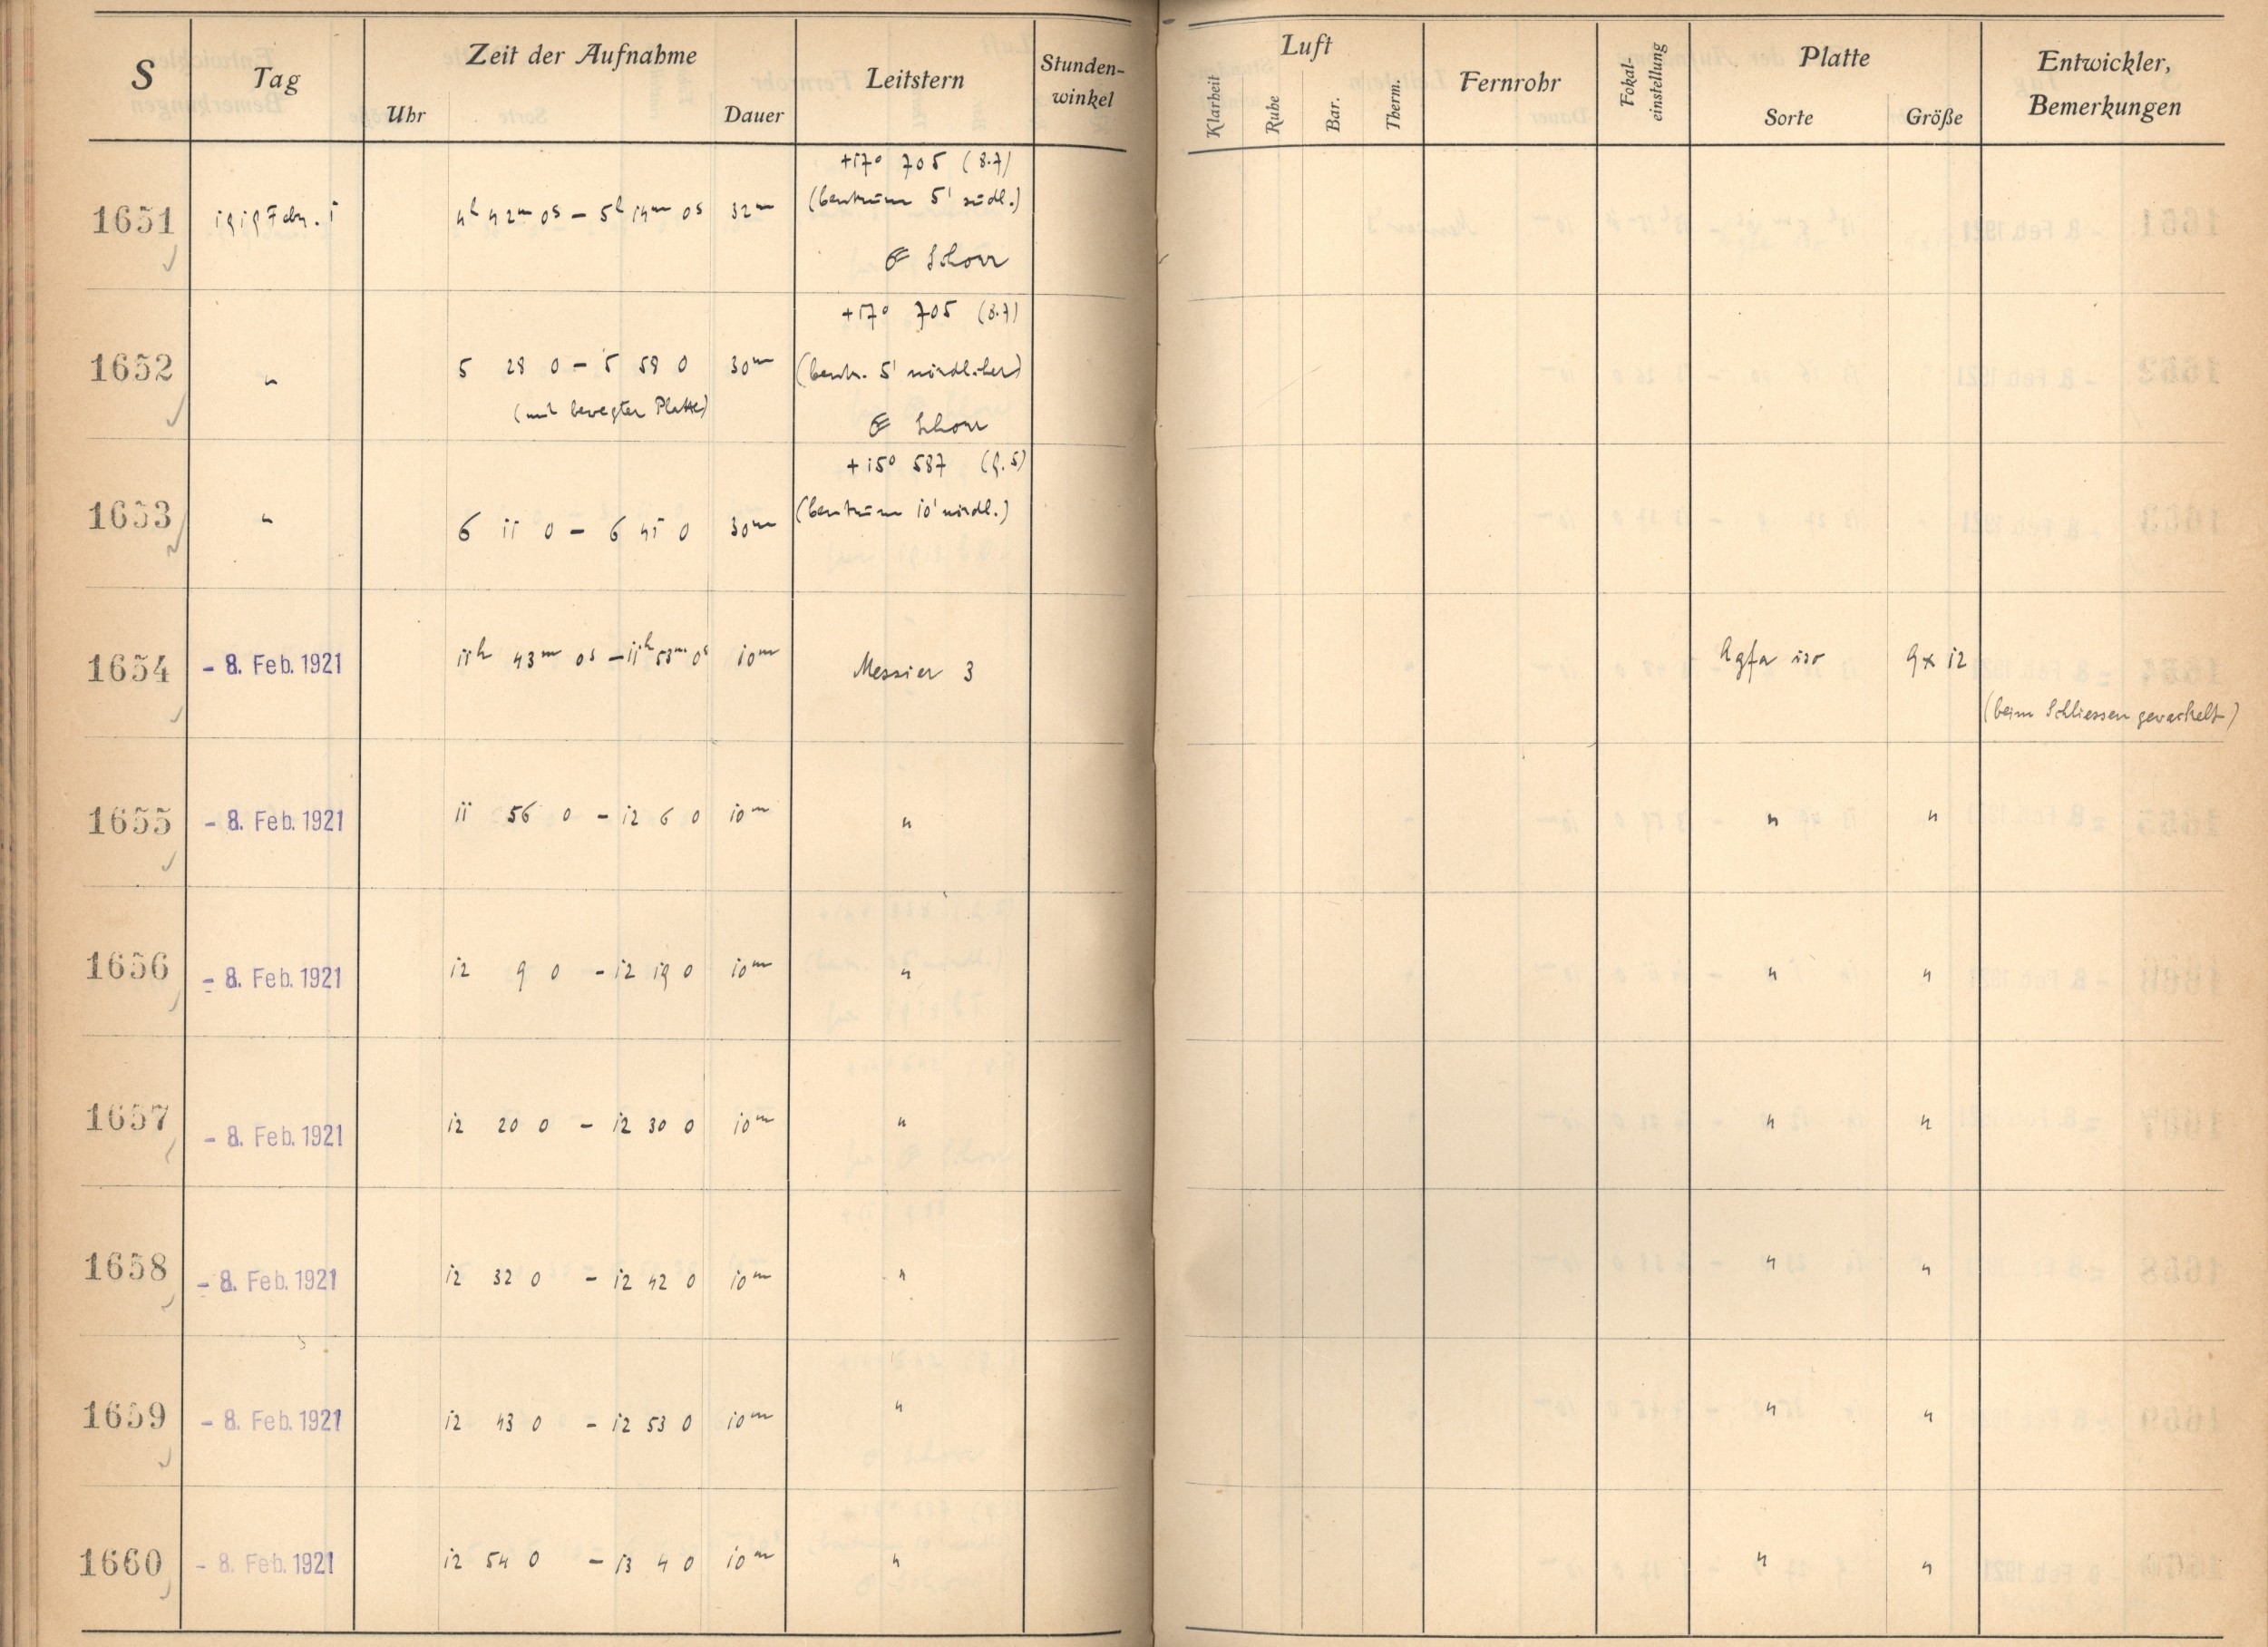 S Tag Zeit der Aufnahme Leitstern Stunden-
winkel Luft Fernrohr Fokal-
einstellung Platte Entwickler,
Bemerkungen
Uhr Dauer Klarheit Ruhe Bar. Therm. Sorte Größe
+17° 705 (8.7)
1651 1919 Febr. 1 4h 42m 0s – 5h 14m 0s 32m (Centrum 5' südl.)
Schorr
+17° 705 (8.7)
1652 " 5 28 0 – 5 58 0 30m (Centr. 5' nördlicher)
(mit bewegter Platte)
Schorr
+15° 587 (9.5)
1653 " 6 11 0 – 6 41 0 30m (Centrum 10' nördl.)
1654 – 8. Feb. 1921 11h 43m 0s – 11h 53m 0s 10m Messier 3 Agfa iso 9 x 12
(beim Schliessen gewackelt)
1655 – 8. Feb. 1921 11 56 0 – 12 6 0 10m " " "
1656 – 8. Feb. 1921 12 9 0 – 12 19 0 10m " " "
1657 – 8. Feb. 1921 12 20 0 – 12 30 0 10m " " "
1658 – 8. Feb. 1921 12 32 0 – 12 42 0 10m " " "
1659 – 8. Feb. 1921 12 43 0 – 12 53 0 10m " " "
1660 – 8. Feb. 1921 12 54 0 – 13 4 0 10m " " "